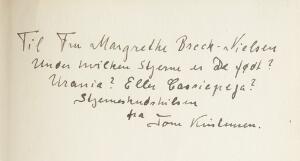 Til Fru Margrethe Breck-Nielsen
Under hvilken Stjerne er De født?
Urania? Eller Cassiopeja?
Stjerneskudshilsen
fra
Tom Kristensen.